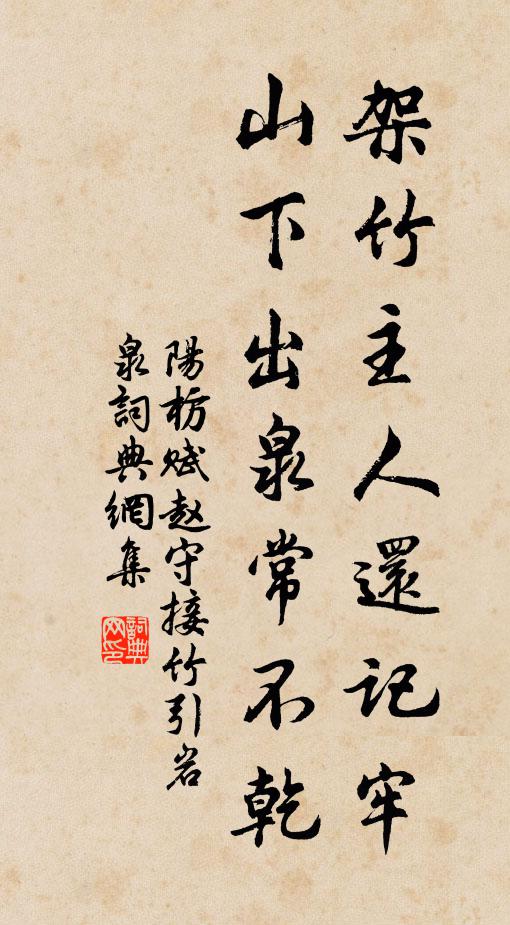 架竹主人還記牢
山下出泉常不乾
陽枋赋赵守接竹引岩
泉詞典網集
詞典
网印